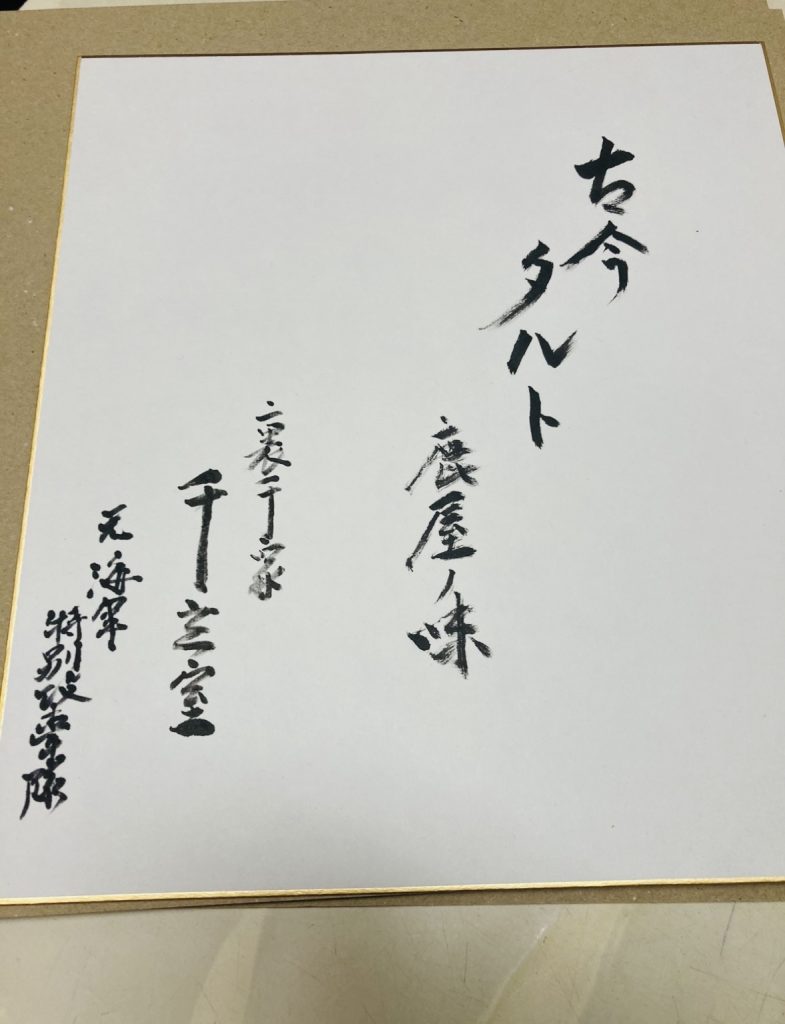 古今
タルト
鹿屋ノ味
裏千家
千玄室
元海軍
特別攻撃隊